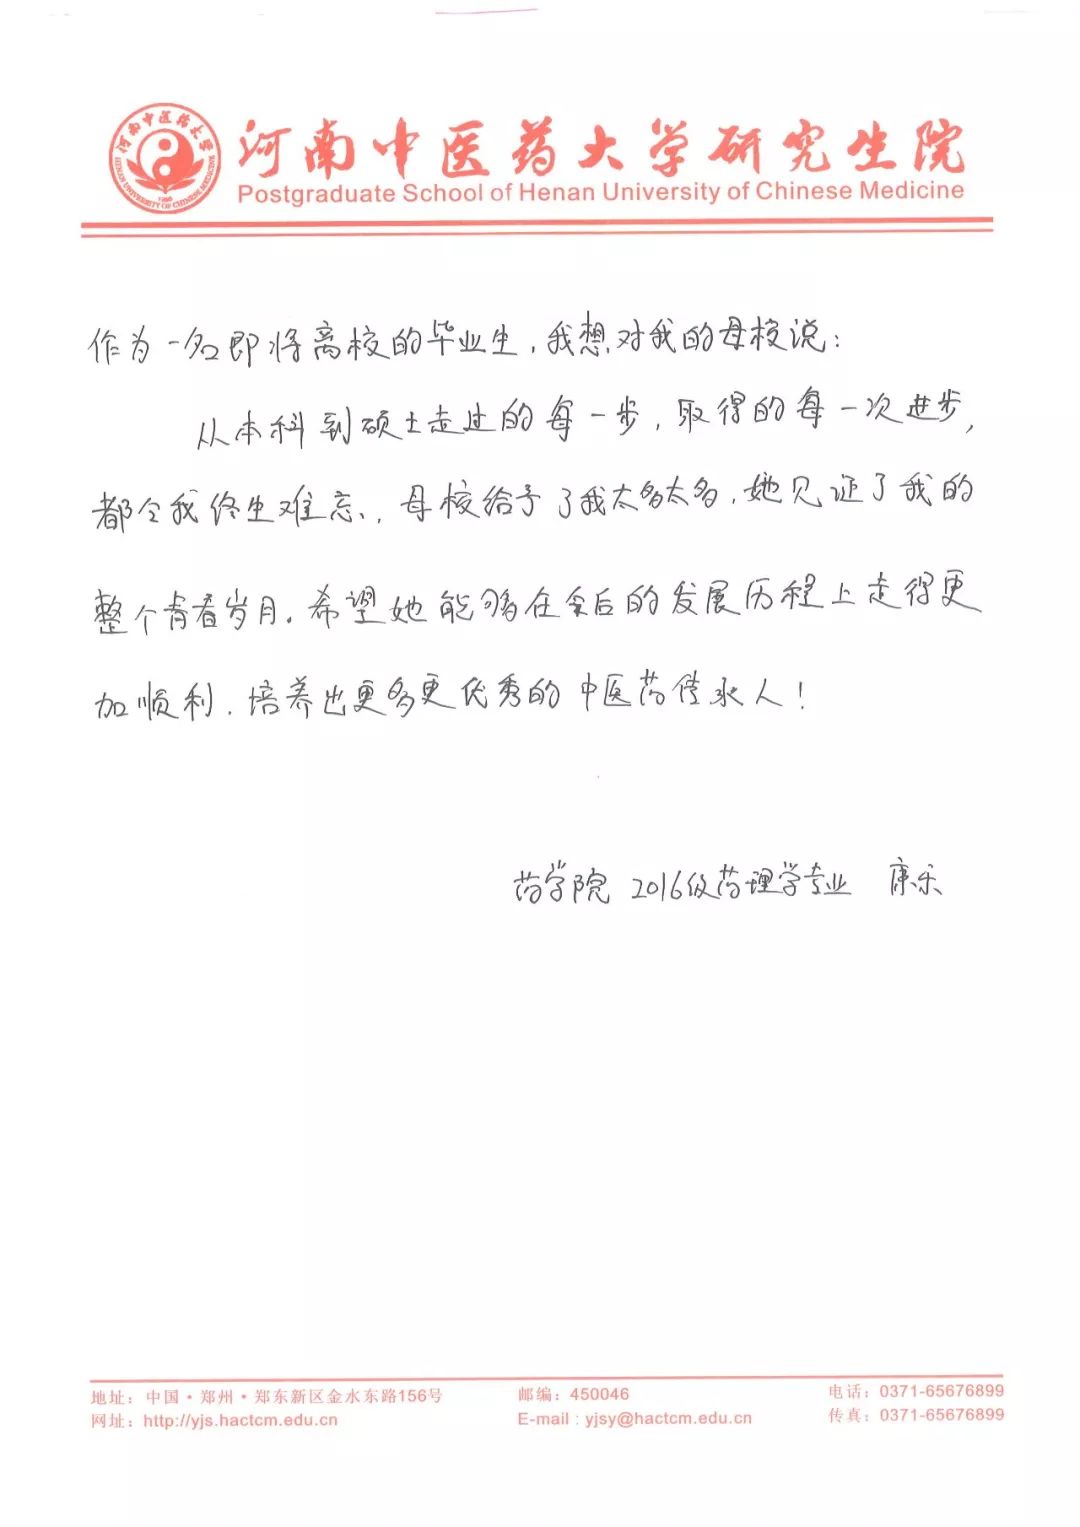 河南中医药大学研究生院
Postgraduate School of Henan University of Chinese Medicine
河南中医药大学
HENAN UNIVERSITY OF CHINESE MEDICINE
1958
作为一名即将离校的毕业生,我想对我的母校说:
从本科到硕士走过的每一步,取得的每一次进步,
都令我终生难忘,母校给予了我太多太多,她见证了我的
整个青春岁月。希望她能够在今后的发展历程上走得更
加顺利,培养出更多更优秀的中医药传承人!
药学院 2016级药理学专业 康乐
地址:中国·郑州·郑东新区金水东路156号 邮编:450046 电话:0371-65676899
网址:http://yjs.hactcm.edu.cn E-mail:yjsy@hactcm.edu.cn 传真:0371-65676899